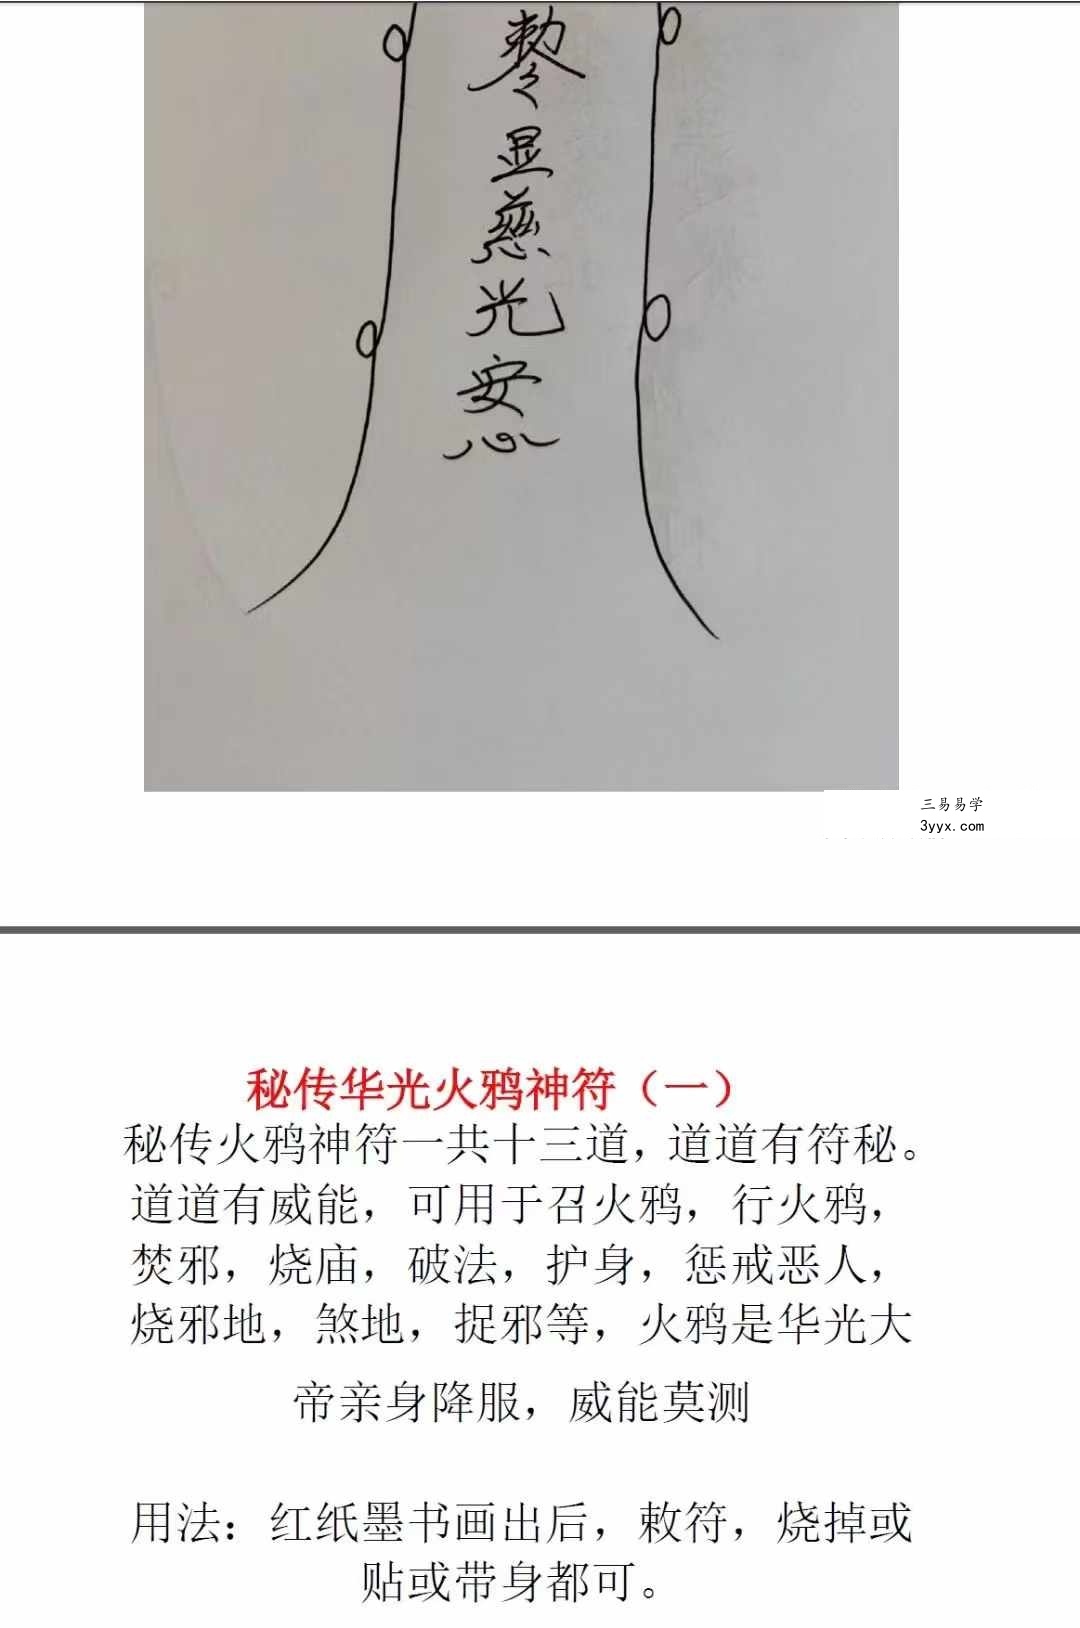 敕
令
显
慈
光
安
心
三易易学
3yyx.com
秘传华光火鸦神符（一）
秘传火鸦神符一共十三道，道道有符秘。
道道有威能，可用于召火鸦，行火鸦，
焚邪，烧庙，破法，护身，惩戒恶人，
烧邪地，煞地，捉邪等，火鸦是华光大
帝亲身降服，威能莫测
用法：红纸墨书画出后，敕符，烧掉或
贴或带身都可。